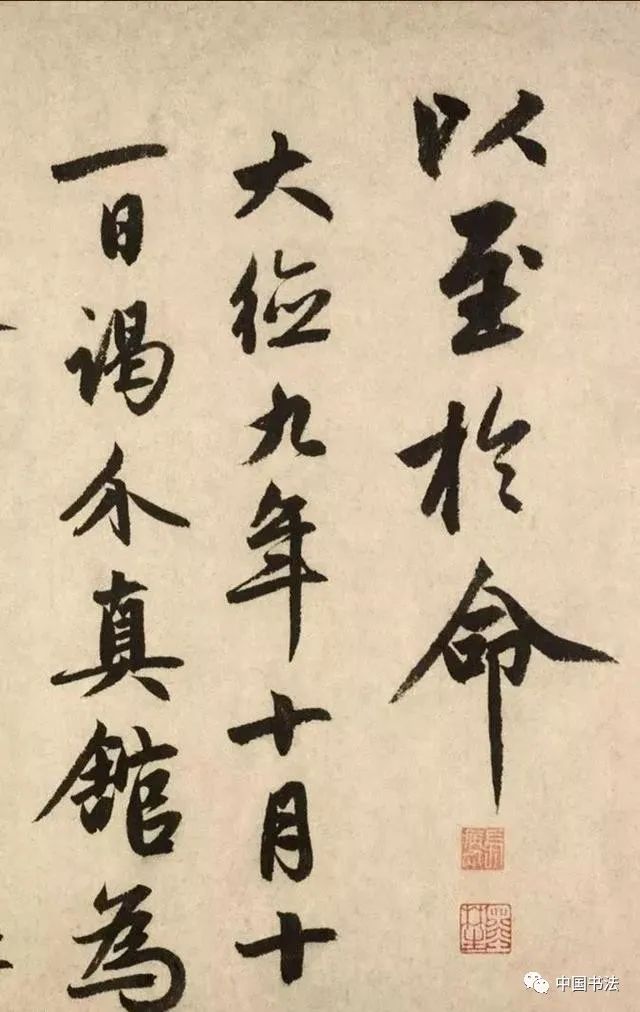 以至於命
大德九年十月十
一日謁介真館為
中国书法